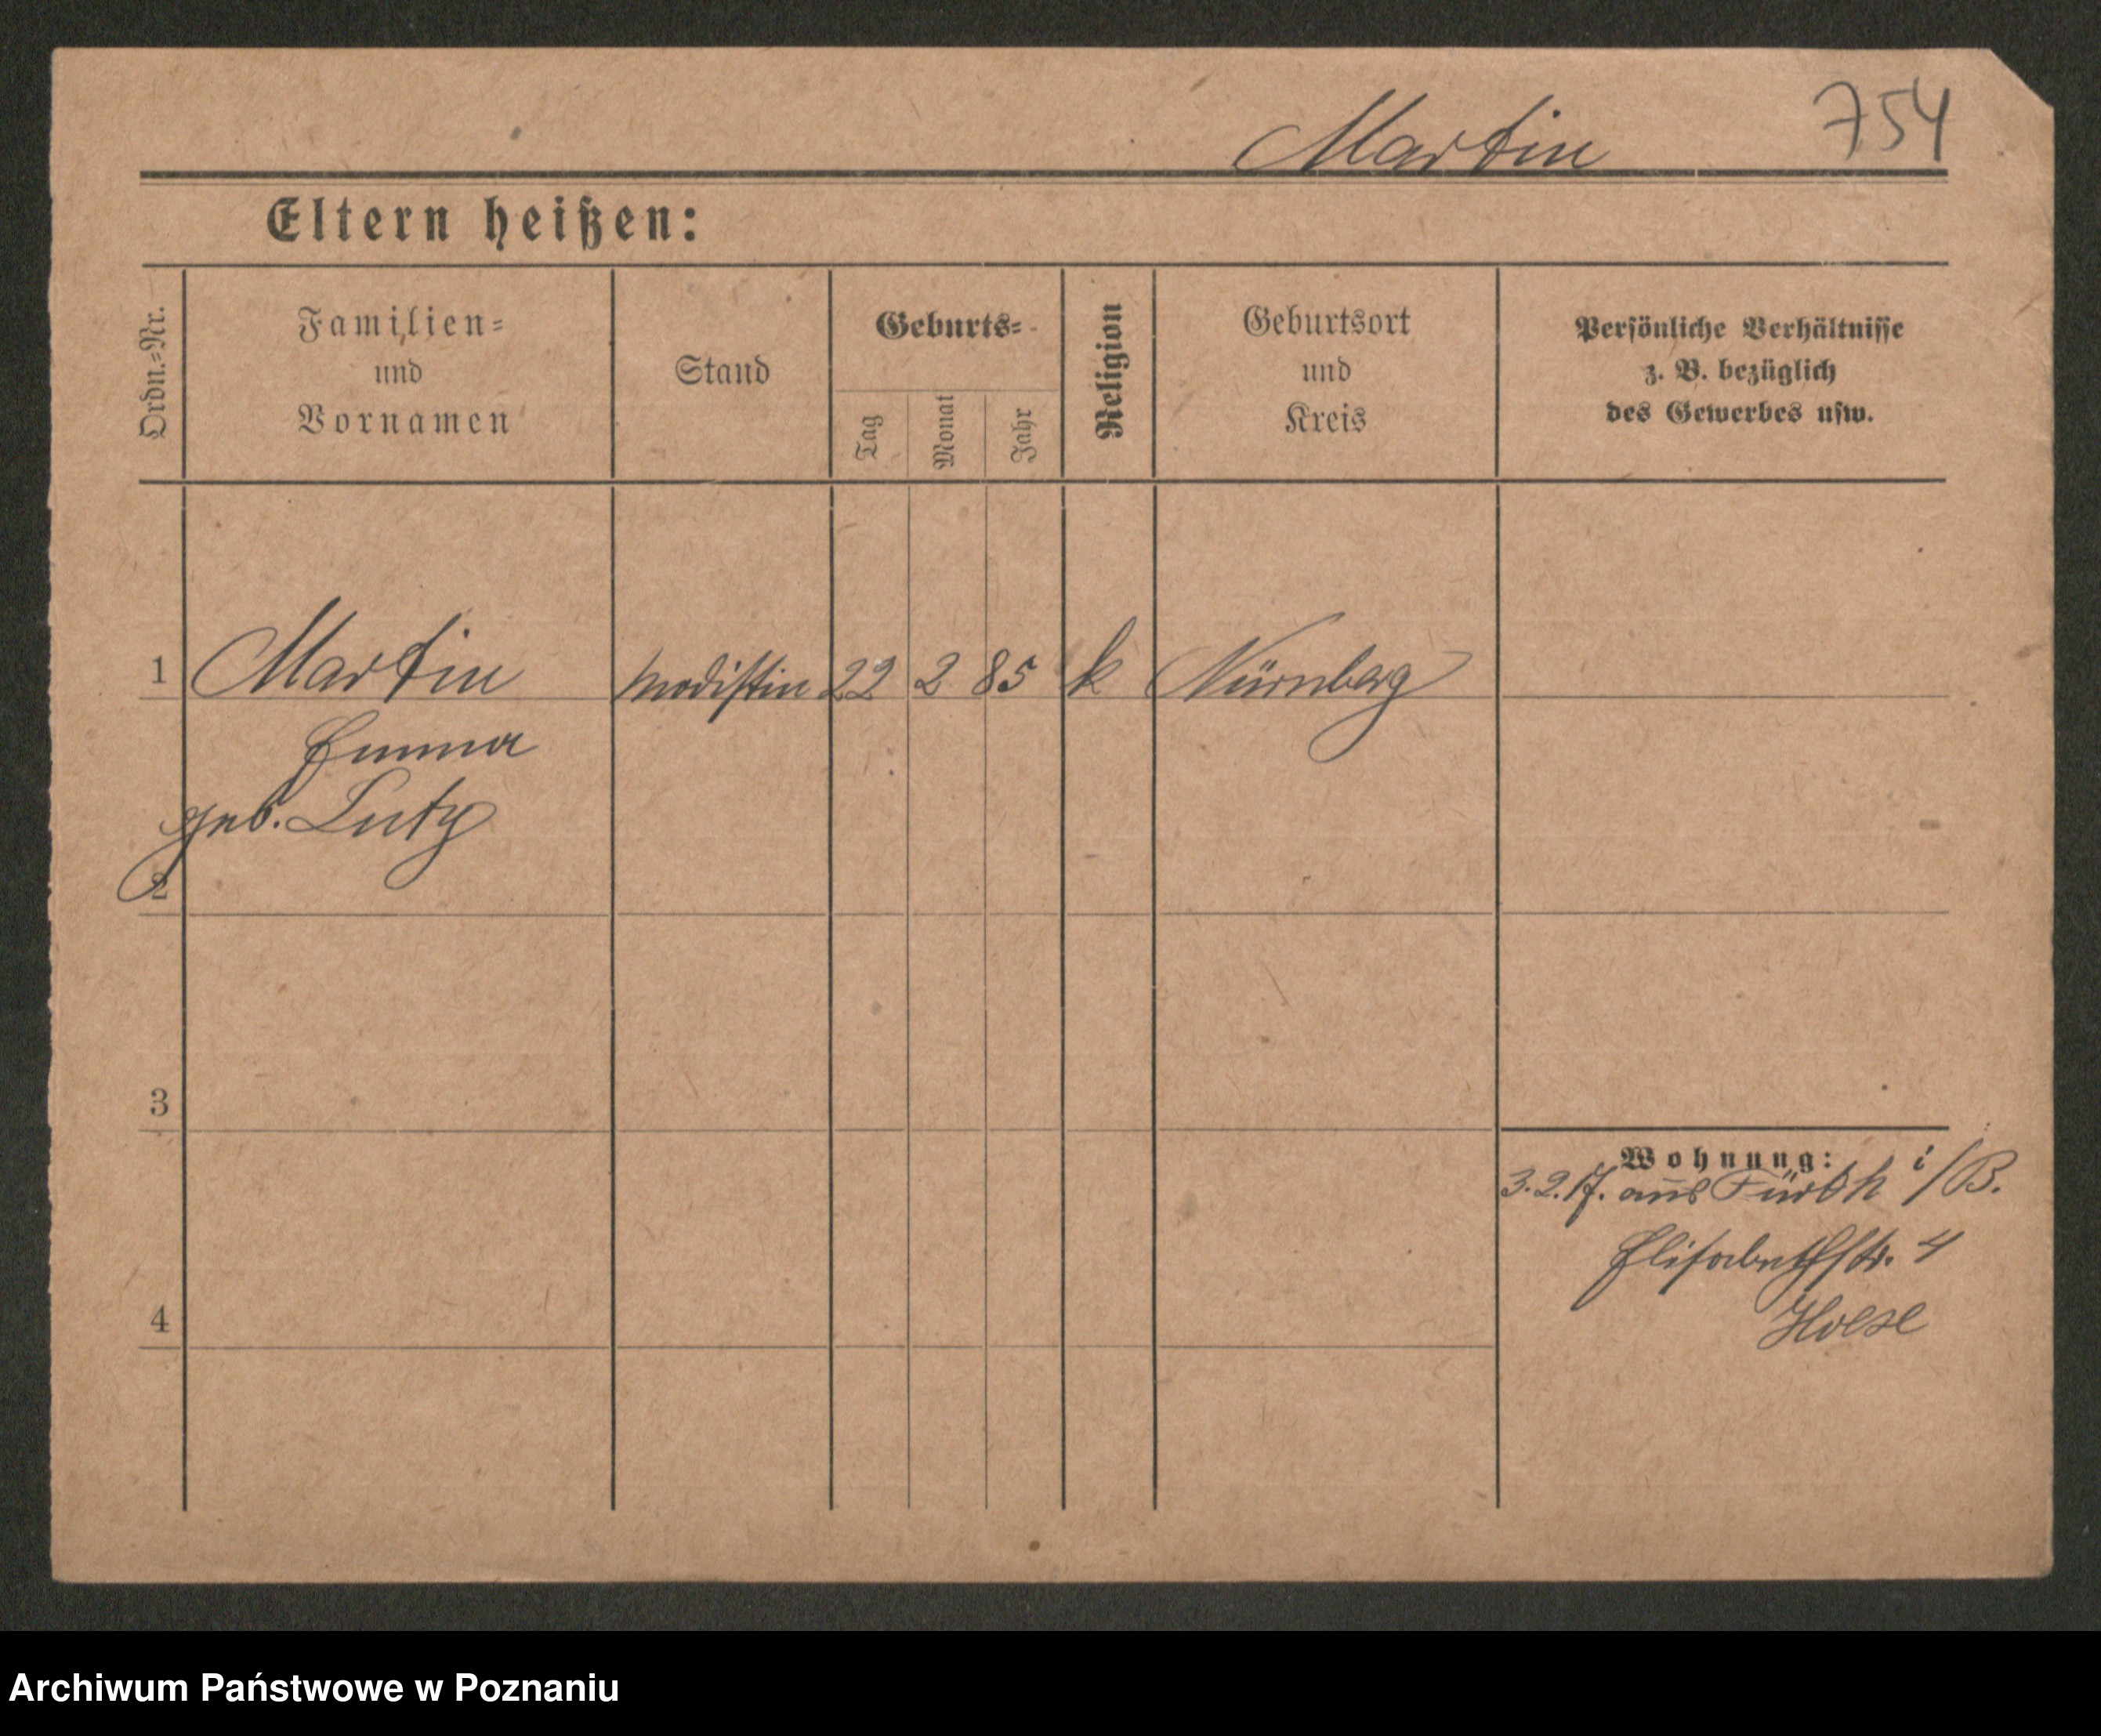 754
Martin
Eltern heißen:
Ordn.=Nr.
Familien=
und
Vornamen
Stand
Geburts=
Tag
Monat
Jahr
Religion
Geburtsort
und
Kreis
Persönliche Verhältnisse
z. B. bezüglich
des Gewerbes usw.
1 Martin Modistin 22 2 85 k Nürnberg
Emma
geb. Lutz
2
3
Wohnung:
3.2.17. aus Fürth i/B.
Elisabethstr. 4
4
Archiwum Państwowe w Poznaniu